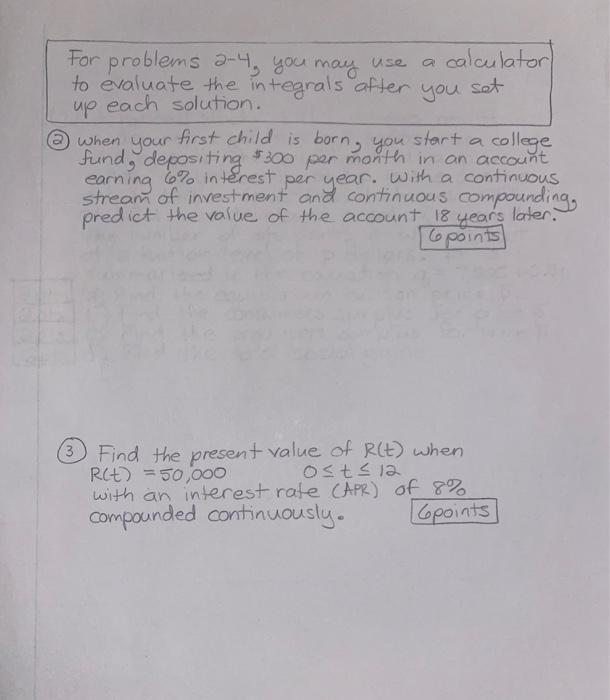 For problems 2-4, you may use a calculator
to evaluate the integrals after you set
up each solution.
② when your first child is born, you start a college
fund, depositing $300 per month in an account
earning 6% interest per year. With a continuous
stream of investment and continuous compounding,
predict the value of the account 18 years later.
6 points
③ Find the present value of R(t) when
R(t) = 50,000 0 ≤ t ≤ 12
with an interest rate (APR) of 8%
compounded continuously.
6 points